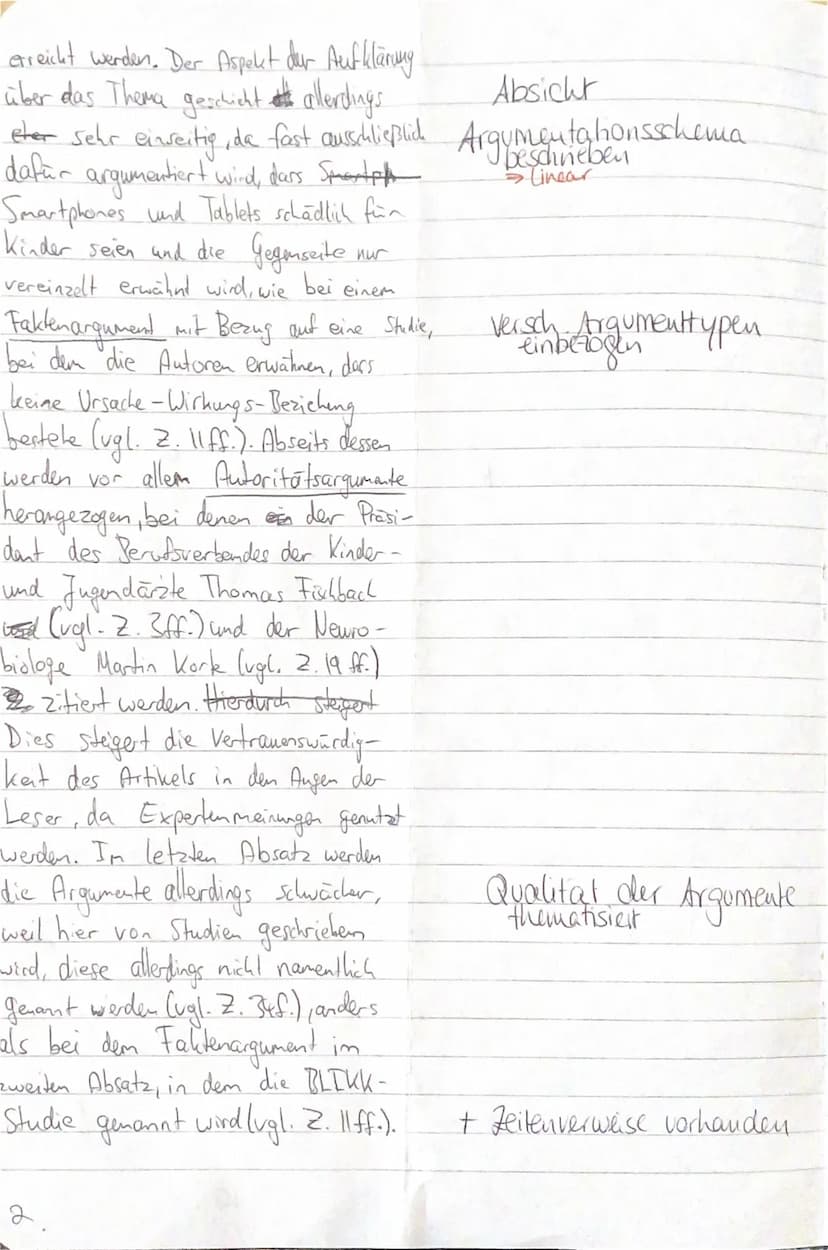 erreicht werden. Der Aspekt der Aufklärung
über das Thema geschieht allerdings
Absicht
eher sehr einseitig, da fast ausschließlich
Argumentationsschema
beschrieben
dafür argumentiert wird, dass Smartph
⇒ linear
Smartphones und Tablets schädlich für
Kinder seien und die Gegenseite nur
vereinzelt erwähnt wird, wie bei einem
Faktenargument mit Bezug auf eine Studie,
versch. Argumenttypen
einbezogen
bei dem die Autoren erwähnen, dass
keine Ursache-Wirkungs-Beziehung
bestehe (vgl. Z. 11ff.). Abseits dessen
werden vor allem Autoritätsargumente
herangezogen, bei denen ein der Präsi-
dent des Berufsverbandes der Kinder-
und Jugendärzte Thomas Fischbach
(vgl. Z. 3ff.) und der Neuro-
biologe Martin Korte (vgl. Z. 19 ff.)
zitiert werden. Hierdurch steigert
Dies steigert die Vertrauenswürdig-
keit des Artikels in den Augen der
Leser, da Expertenmeinungen genutzt
werden. Im letzten Absatz werden
die Argumente allerdings schwächer,
Qualität der Argumente
thematisiert
weil hier von Studien geschrieben
wird, diese allerdings nicht namentlich
genannt werden (vgl. Z. 34f.), anders
als bei dem Faktenargument im
zweiten Absatz, in dem die BLIKK-
Studie genannt wird (vgl. Z. 11ff.).
+ Zeilenverweise vorhanden
2.